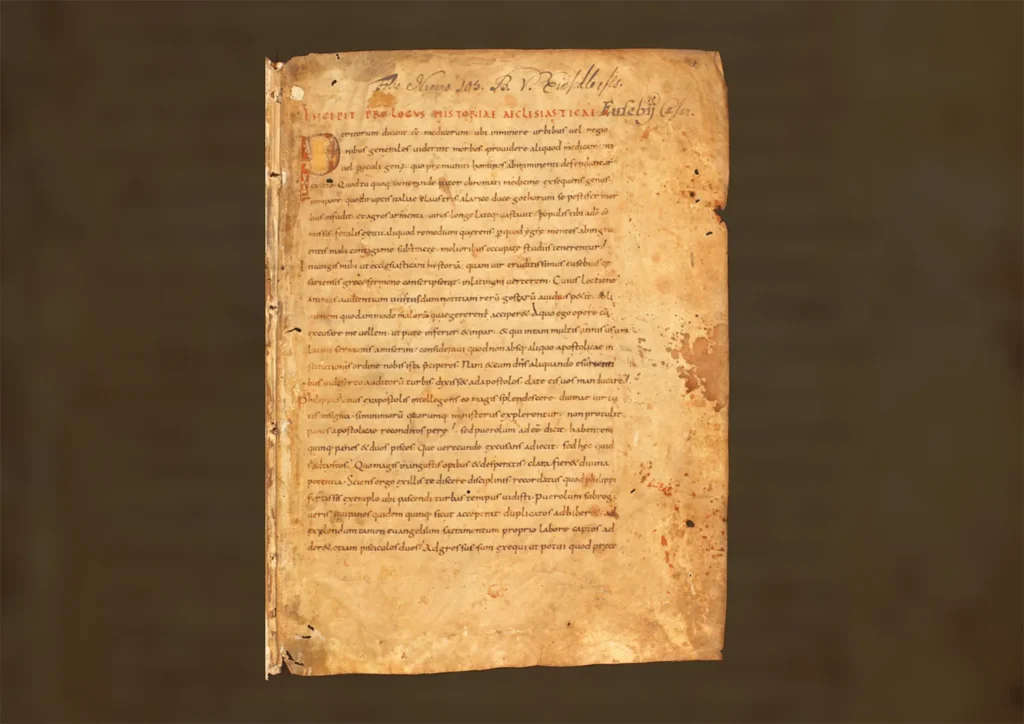 103. B. V.
INCIPIT PROLOGUS HISTORIAE AECLESIASTICAE Eusebij Cesar.
Peritorum dicunt eē medicorum· ubi imminere urbibus vel regio
nibus generales viderint morbos· providere aliquod medicamenti
vel poculi genus· quo praemuniti homines ab imminenti defendantur
exitio· Quod tu quoq· venerande pater chromati medicine exsequens genus·
tempore· quo diruptis italiae claustris alarico duce gothorum se pestifer mor
bus infudit· et agros armenta· viros longe lateq· vastavit· populis tibi a dō cō
missis· feralis exitii aliquod remedium querens· p quod egrę mentes ab ingru
entis mali contagione subtractę· melioribus occupatę studiis tenerentur·
Iniungis mihi ut ecclesiasticam historiā· quam vir eruditissimus eusebius cę
sariensis greco sermone conscripserat· in latinum verterem· Cuius lectione
animus audientium· notitiam rerū gestarū avidius petit· obli
vionem quodammodo malorū quae gererent acciper&· A quo ego opere cū
excusare me vellem· ut pute inferior & inpar· & qui in tam multis annis usum
latini sermonis amiserim· consideravi quod non absq· aliquo apostolicae in
stitutionis ordine nobis ista pciperes· Nam & cum dn̄s aliquando esurienti
bus in deserto auditorū turbis dixiss& ad apostolos· date eis vos manducare·
Philippus unus ex apostolis intellegens eo magis splendescere· divinae virtu
tis insignia· si minimorū quorumq· ministeriis explerentur· non protulit
panes apostolicae reconditos perę· sed puerolum ad eē dicit· habentem
quinq· panes & duos pisces· Que verecunde excusans adiecit· sed hęc quid
s ad tantos· Quo magis in angustis opibus & desperatis· clara fier& divina
potentia· Sciens ergo ex illis te discere disciplinis· recordatus quod philippi
fortassis exemplo ubi pascendi turbas tempus vidisti· puerolum subrog
veris· qui panes quidem quinq· sicut acceperat duplicatos adhiber&· ad
explendum tamen evangelium sacramentum proprio labore captos ad
der& etiam pisciculos duos· Adgressus sum exequi ut potui quod pręce